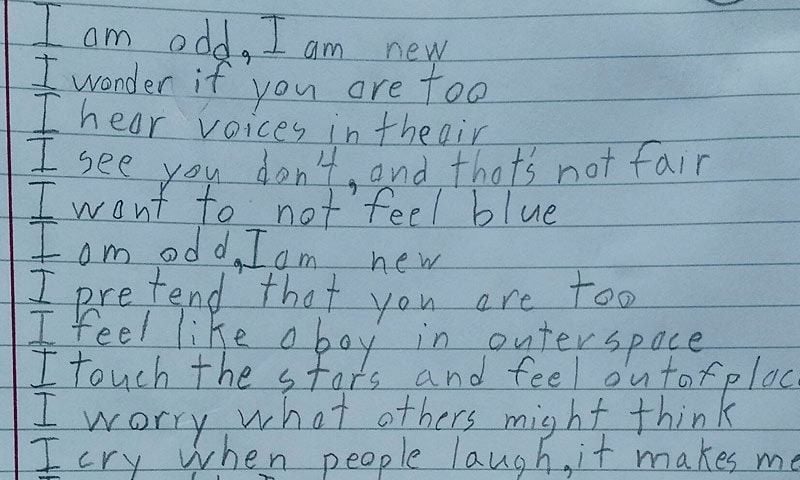 I am odd, I am new
I wonder if you are too
I hear voices in the air
I see you don't, and that's not fair
I want to not feel blue
I am odd, I am new
I pretend that you are too
I feel like a boy in outerspace
I touch the stars and feel out of plac
I worry what others might think
I cry when people laugh, it makes me